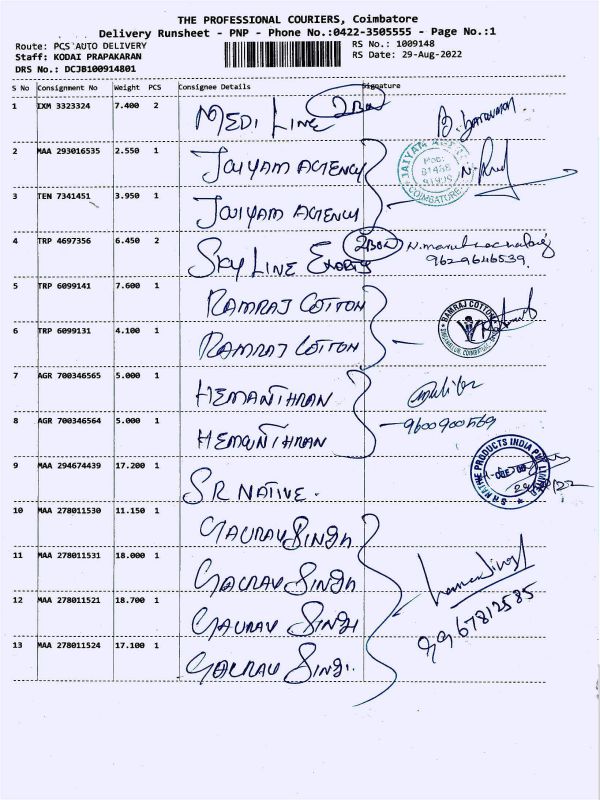 THE PROFESSIONAL COURIERS, Coimbatore
Delivery Runsheet - PNP - Phone No.:0422-3505555 - Page No.:1
Route: PCS AUTO DELIVERY
RS No.: 1009148
Staff: KODAI PRAPAKARAN
RS Date: 29-Aug-2022
DRS No.: DCJB100914801
S No Consignment No Weight PCS Consignee Details Signature
1 IXM 3323324 7.400 2 MEDI LINE 2Box
2 MAA 293016535 2.550 1 JAIYAM AGENCY
3 TEN 7341451 3.950 1 JAIYAM AGENCY
4 TRP 4697356 6.450 2 SKY LINE EXORTS 2Box
9629646539
5 TRP 6099141 7.600 1 RAMRAJ COTTON
RAMRAJ COTTON
6 TRP 6099131 4.100 1 RAMRAJ COTTON
7 AGR 700346565 5.000 1 HEMANTHRAN
8 AGR 700346564 5.000 1 HEMANTHRAN
9600900569
9 MAA 294674439 17.200 1 SR NATIVE.
10 MAA 278011530 11.150 1 GAURAV SINGH
11 MAA 278011531 18.000 1 GAURAV SINGH
12 MAA 278011521 18.700 1 GAURAV SINGH
9967812585
13 MAA 278011524 17.100 1 GAURAV SINGH